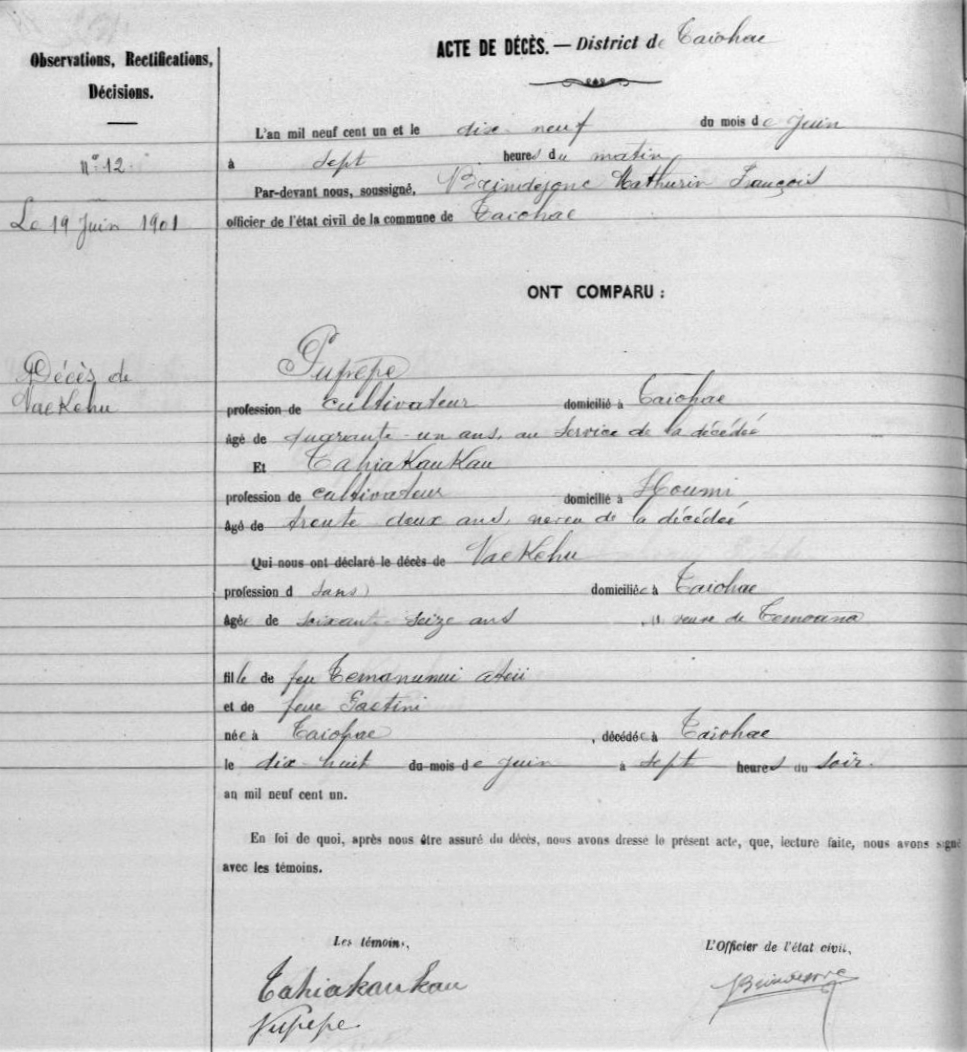 ACTE DE DÉCÈS. — District de Taiohae
Observations, Rectifications,
Décisions.
L'an mil neuf cent un et le dix neuf du mois de Juin
n° 12.
à sept heures du matin
Par-devant nous, soussigné, Mathurin François
Le 19 Juin 1901
officier de l'état civil de la commune de Taiohae
ONT COMPARU :
Pupepe
Décès de
Vaekehu
profession de cultivateur domicilié à Taiohae
âgé de quarante-un ans, au service de la décédée
Et Tahiakaukau
profession de cultivateur domicilié à Houmi
Âgé de trente deux ans, neveu de la décédée
Qui nous ont déclaré le décès de Vaekehu
profession d sans domiciliée à Taiohae
âgée de soixante-seize ans, veuve de Temoana
fille de feu Temanunui
et de feue
née à Taiohae, décédée à Taiohae
le dix-huit du mois de Juin à sept heures du soir.
an mil neuf cent un.
En foi de quoi, après nous être assuré du décès, nous avons dressé le présent acte, que, lecture faite, nous avons signé
avec les témoins.
Les témoins,
L'Officier de l'état civil,
Tahiakaukau
Pupepe.